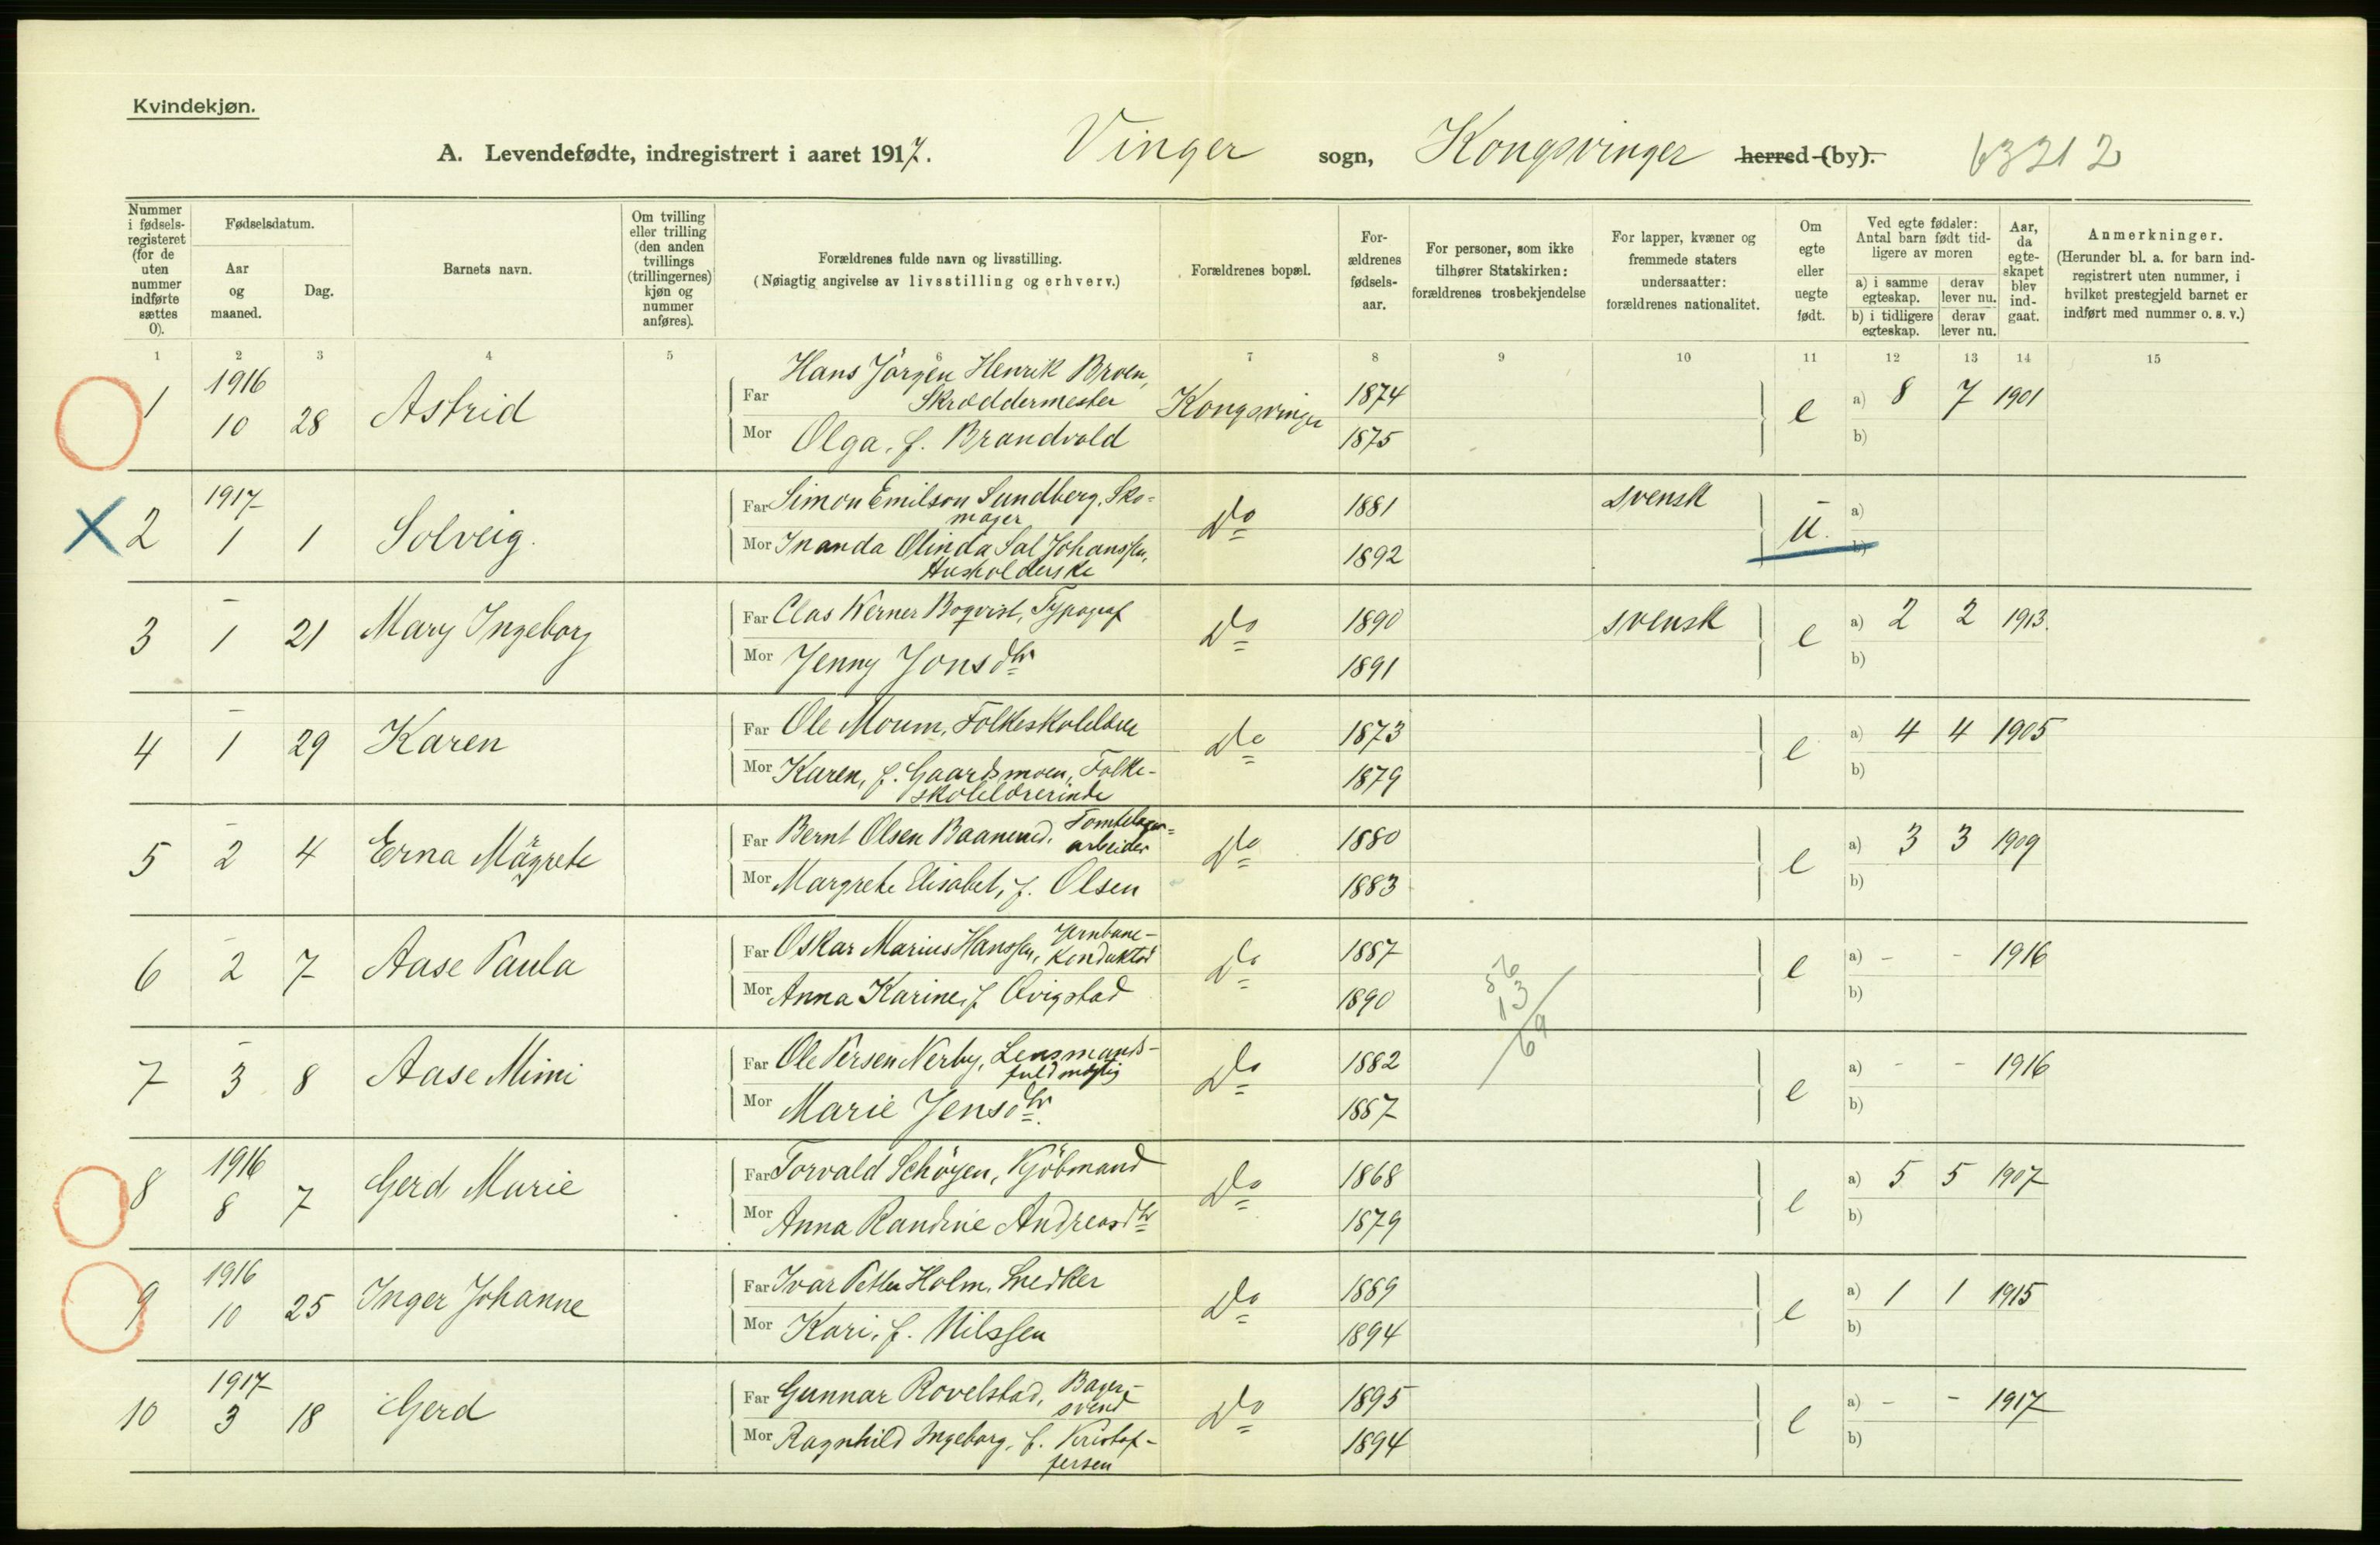 Kvindekjøn.
A. Levendefødte, indregistrert i aaret 1917. Vinger sogn, Kongsvinger herred (by). 63212
Nummer i fødselsregisteret (for de uten nummer indførte sættes 0).
Fødselsdatum.
Aar og maaned.
Dag.
Barnets navn.
Om tvilling eller trilling (den anden tvillings (trillingernes) kjøn og nummer anføres).
Forældrenes fulde navn og livsstilling.
(Nøiagtig angivelse av livsstilling og erhverv.)
Forældrenes bopæl.
Forældrenes fødselsaar.
For personer, som ikke tilhører Statskirken: forældrenes trosbekjendelse
For lapper, kvæner og fremmede staters undersaatter: forældrenes nationalitet.
Om egte eller uegte født.
Ved egte fødsler: Antal barn født tidligere av moren
a) i samme egteskap.
derav lever nu.
b) i tidligere egteskap.
derav lever nu.
Aar, da egteskapet blev indgaat.
Anmerkninger.
(Herunder bl. a. for barn indregistrert uten nummer, i hvilket prestegjeld barnet er indført med nummer o. s. v.)
1 2 3 4 5 6 7 8 9 10 11 12 13 14 15
1 1916 10 28 Astrid Far Hans Jörgen Henrik Broen, Skræddermester Kongsvinger 1874 e a) 8 7 1901
Mor Olga, f. Brandvold 1875 b)
2 1917 1 1 Solveig. Far Simon Emilson Sundberg, Skomager Do 1881 svensk u. a)
Mor Inanda Olinda Sal Johanssen, Husholderske 1892 b)
3 - 1 21 Mary Ingeborg Far Clas Werner Boqvist, Typograf Do 1890 svensk e a) 2 2 1913.
Mor Jenny Jonsdtr 1891 b)
4 - 1 29 Karen Far Ole Moum, Folkeskolelærer Do 1873 e a) 4 4 1905
Mor Karen, f. Gaardsmoen, Folkeskolelærerinde 1879 b)
5 - 2 4 Erna Margrete Far Bernt Olsen Baanerud, Tomtelager=arbeider Do 1880 e a) 3 3 1909
Mor Margrete Elisabet, f. Olsen 1883 b)
6 - 2 7 Aase Paula Far Oskar Marius Hanssen, Jernbane-Konduktør Do 1887 e a) - - 1916
Mor Anna Karine, f. Qvigstad 1890 b)
56
13
69
7 - 3 8 Aase Mimi Far Ole Persen Nerby, Lensmands-fuldmægtig Do 1882 e a) - - 1916
Mor Marie Jensdtr. 1887 b)
8 1916 8 7 Gerd Marie Far Torvald Schöyen, Kjöbmand Do 1868 e a) 5 5 1907
Mor Anna Randine Andreasdtr 1879 b)
9 1916 10 25 Inger Johanne Far Ivar Petter Holm, Snedker Do 1889 e a) 1 1 1915
Mor Kari, f. Nilssen 1894 b)
10 1917 3 18 Gerd Far Gunnar Rovelstad, Bager-svend Do 1895 e a) - - 1917
Mor Ragnhild Ingeborg, f. Kristof-fersen 1894 b)